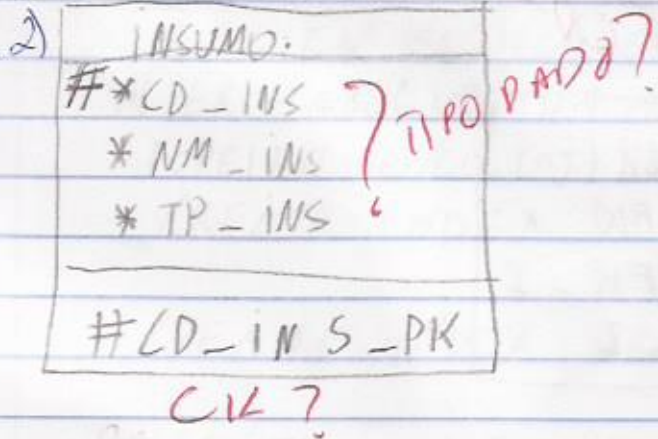 2) INSUMO.
#*CD_INS
* NM_INS
* TP_INS
TIPO DADO?
#CD_INS_PK
CK?